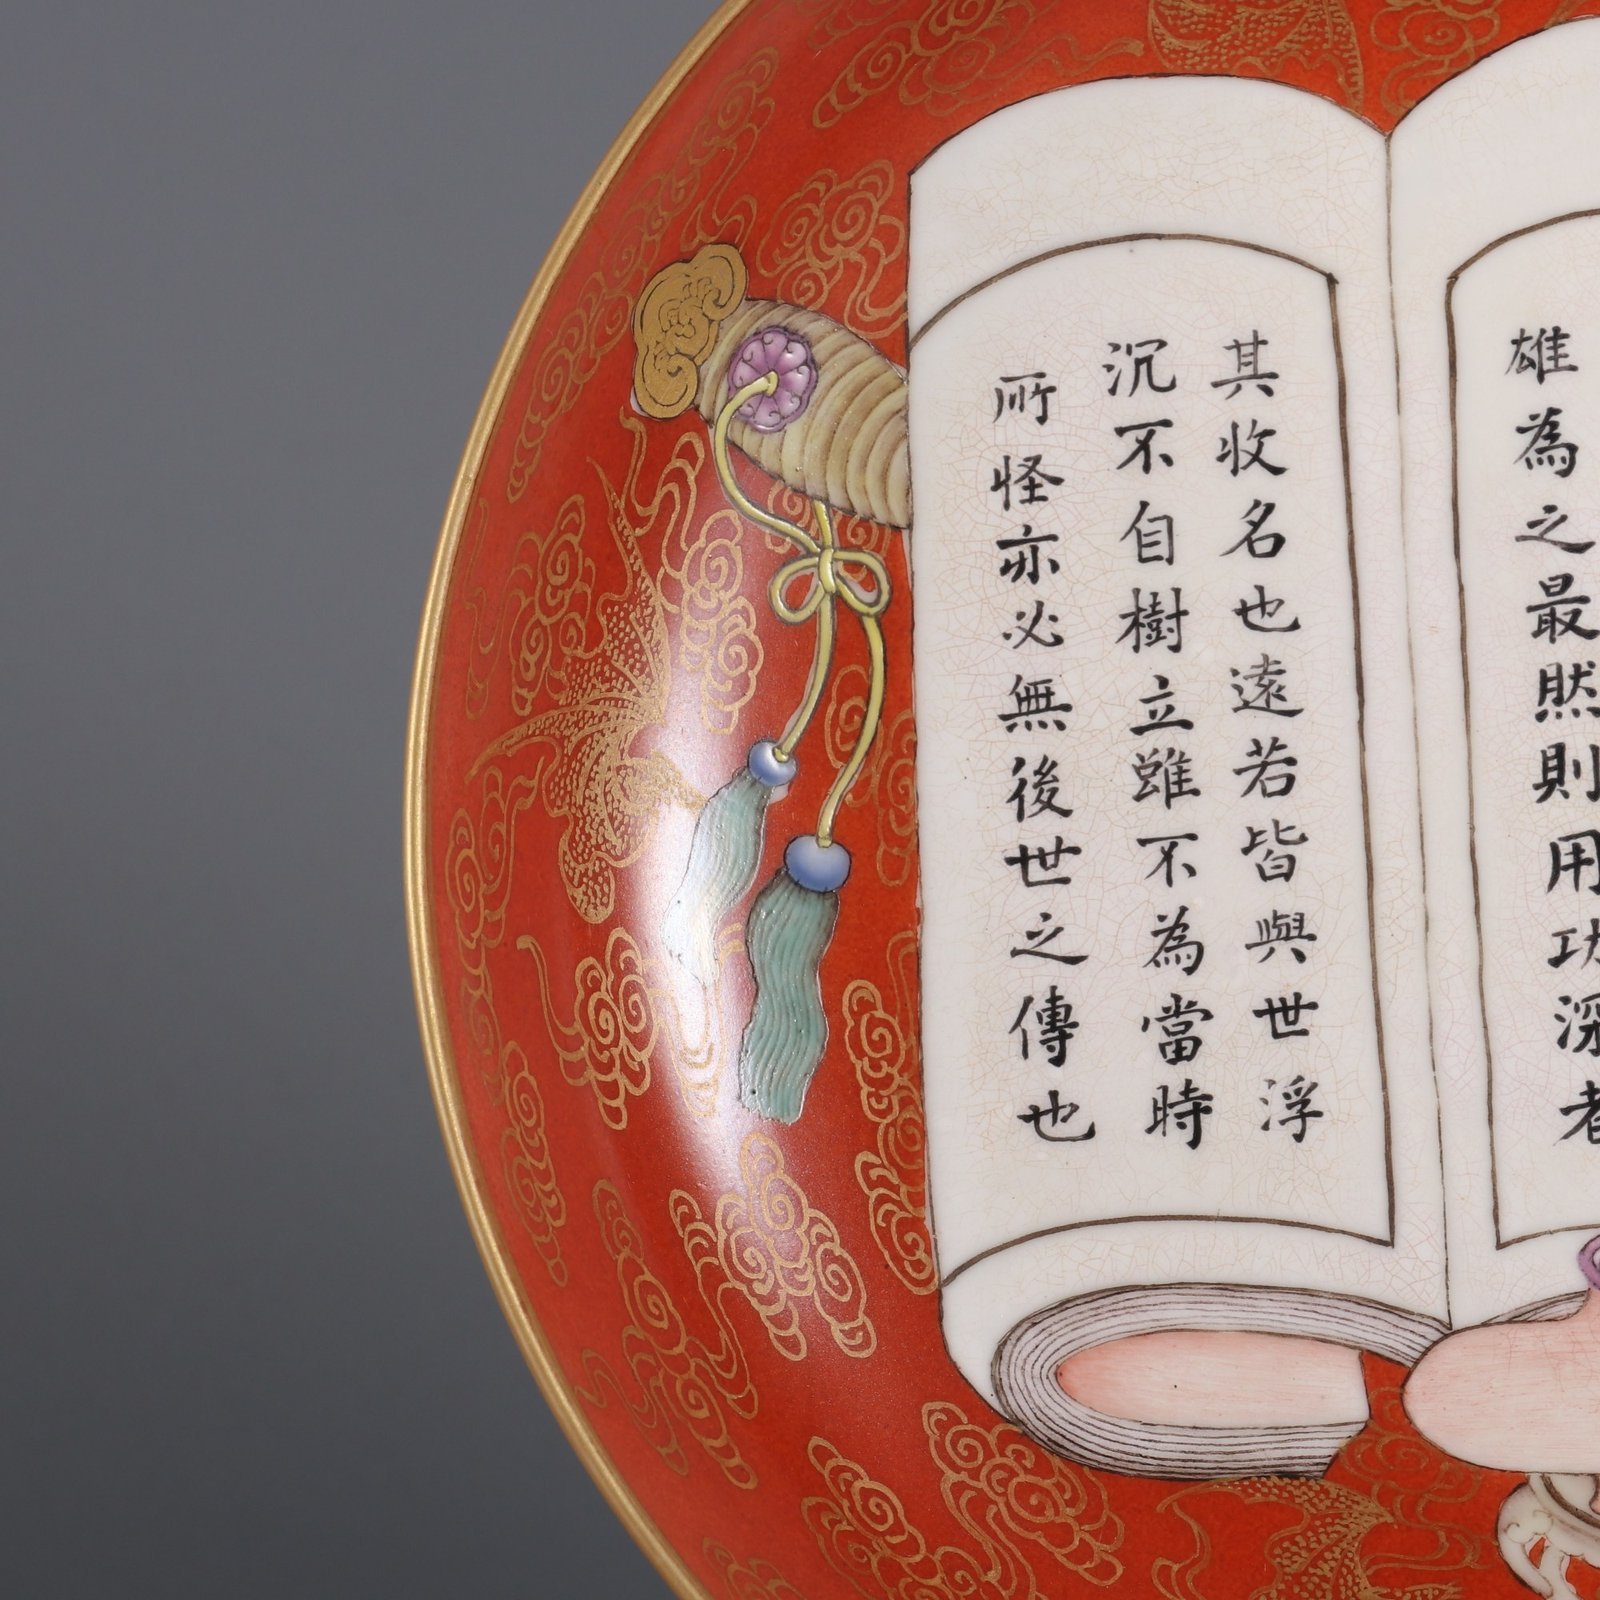 雄為之最然則用功深者
其收名也遠若皆與世浮
沉不自樹立雖不為當時
所怪亦必無後世之傳也